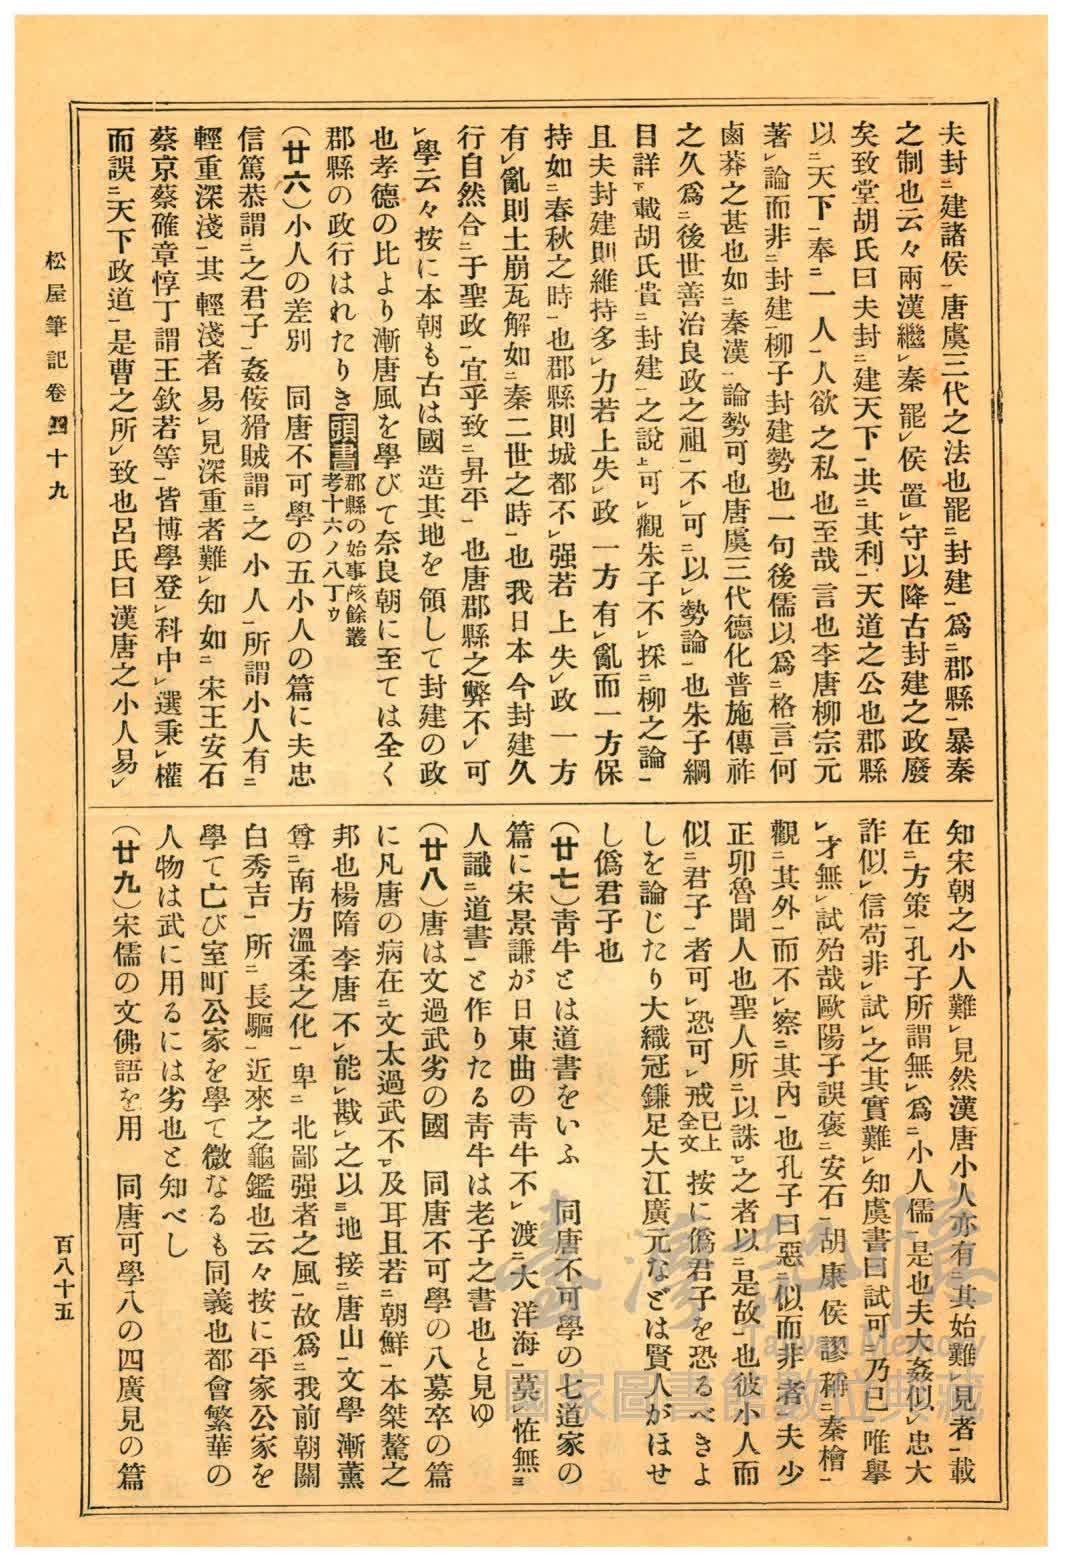 夫封二建諸侯一唐虞三代之法也罷二封建一爲二郡縣一暴秦
之制也云々兩漢繼レ秦罷レ侯置レ守以降古封建之政廢
矣致堂胡氏曰夫封二建天下一共二其利一天道之公也郡縣
以二天下一奉二一人一人欲之私也至哉言也李唐柳宗元
著レ論而非二封建一柳子封建勢也一句後儒以爲二格言一何
鹵莽之甚也如二秦漢一論勢可也唐虞三代德化普施傳祚
之久爲二後世善治良政之祖一不レ可二以レ勢論一也朱子綱
目詳下載胡氏貴二封建一之說上可レ觀朱子不レ採二柳之論一
且夫封建則維持多レ力若上失レ政一方有レ亂而一方保
持如二春秋之時一也郡縣則城都不レ强若上失レ政一方
有レ亂則土崩瓦解如二秦二世之時一也我日本今封建久
行自然合二于聖政一宜乎致二昇平一也唐郡縣之弊不レ可
レ學云々按に本朝も古は國造其地を領して封建の政
也孝德の比より漸唐風を學びて奈良朝に至ては全く
郡縣の政行はれたりき頭書郡縣の始事陔餘叢
考十六ノ八丁ウ
(廿六)小人の差別　同唐不可學の五小人の篇に夫忠
信篤恭謂二之君子一姦侫猾賊謂二之小人一所謂小人有二
輕重深淺一其輕淺者易レ見深重者難レ知如二宋王安石
蔡京蔡確章惇丁謂王欽若等一皆博學登レ科中レ選秉レ權
而誤二天下政道一是曹之所レ致也呂氏曰漢唐之小人易レ
知宋朝之小人難レ見然漢唐小人亦有二其始難レ見者一載
在二方策一孔子所謂無レ爲二小人儒一是也夫大姦似レ忠大
詐似レ信苟非レ試レ之其實難レ知虞書曰試可乃已一唯擧
レ才無レ試殆哉歐陽子誤褒二安石一胡康侯謬稱二秦檜一
觀二其外一而不レ察二其內一也孔子曰惡二似而非者一夫少
正卯魯聞人也聖人所二以誅レ之者以二是故一也彼小人而
似二君子一者可レ恐可レ戒已上全文　按に僞君子を恐るべきよ
しを論じたり大織冠鎌足大江廣元などは賢人がほせ
し僞君子也
(廿七)靑牛とは道書をいふ　同唐不可學の七道家の
篇に宋景謙が日東曲の靑牛不レ渡二大洋海一莫レ恠無三
人識二道書一と作りたる靑牛は老子之書也と見ゆ
(廿八)唐は文過武劣の國　同唐不可學の八募卒の篇
に凡唐の病在二文太過武不一レ及耳且若二朝鮮一本桀驁之
邦也楊隋李唐不レ能レ戡レ之以三地接二唐山一文學漸薰
尊二南方溫柔之化一卑二北鄙强者之風一故爲二我前朝關
白秀吉一所二長驅一近來之龜鑑也云々按に平家公家を
學て亡び室町公家を學て微なるも同義也都會繁華の
人物は武に用るには劣也と知べし
(廿九)宋儒の文佛語を用　同唐可學八の四廣見の篇
松屋筆記卷四十九
百八十五
臺灣記憶
Taiwan Memory
國家圖書館數位典藏